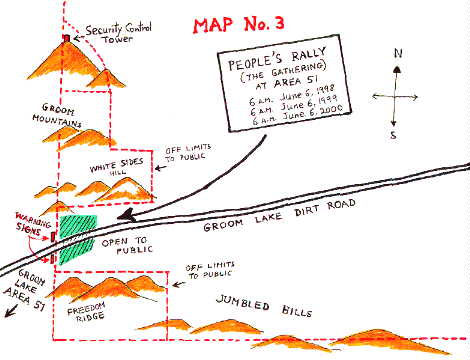 MAP No. 3
Security Control
Tower
PEOPLE'S RALLY
(THE GATHERING)
AT AREA 51
6 A.M. June 6, 1998
6 A.M. June 6, 1999
6 A.M. June 6, 2000
N
S
GROOM
MOUNTAINS
OFF LIMITS
TO PUBLIC
WHITE SIDES
HILL
WARNING
SIGNS
OPEN TO
PUBLIC
GROOM LAKE DIRT ROAD
GROOM
LAKE
AREA 51
OFF LIMITS
TO PUBLIC
FREEDOM
RIDGE
JUMBLED HILLS